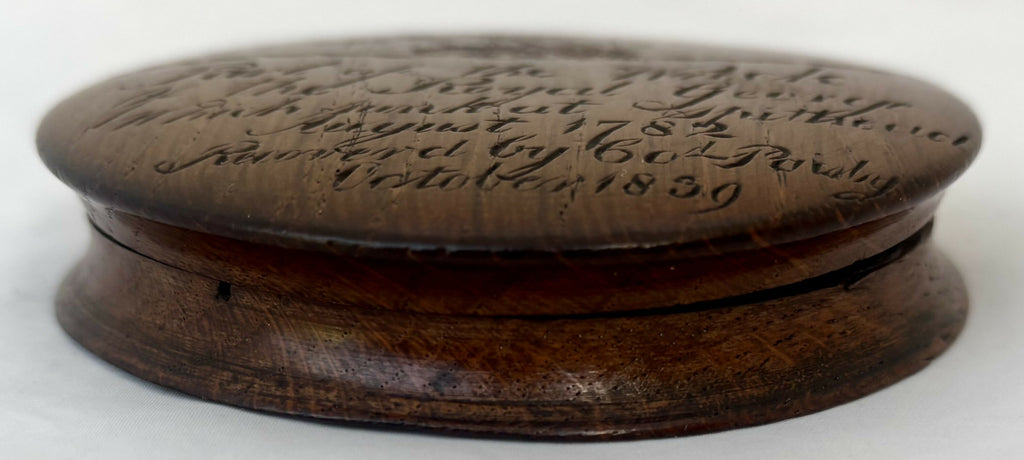 Part of the whole
of the Royal George
Which sunk at Spithead
August 1782
Recoverd by Col Pasley
October 1839